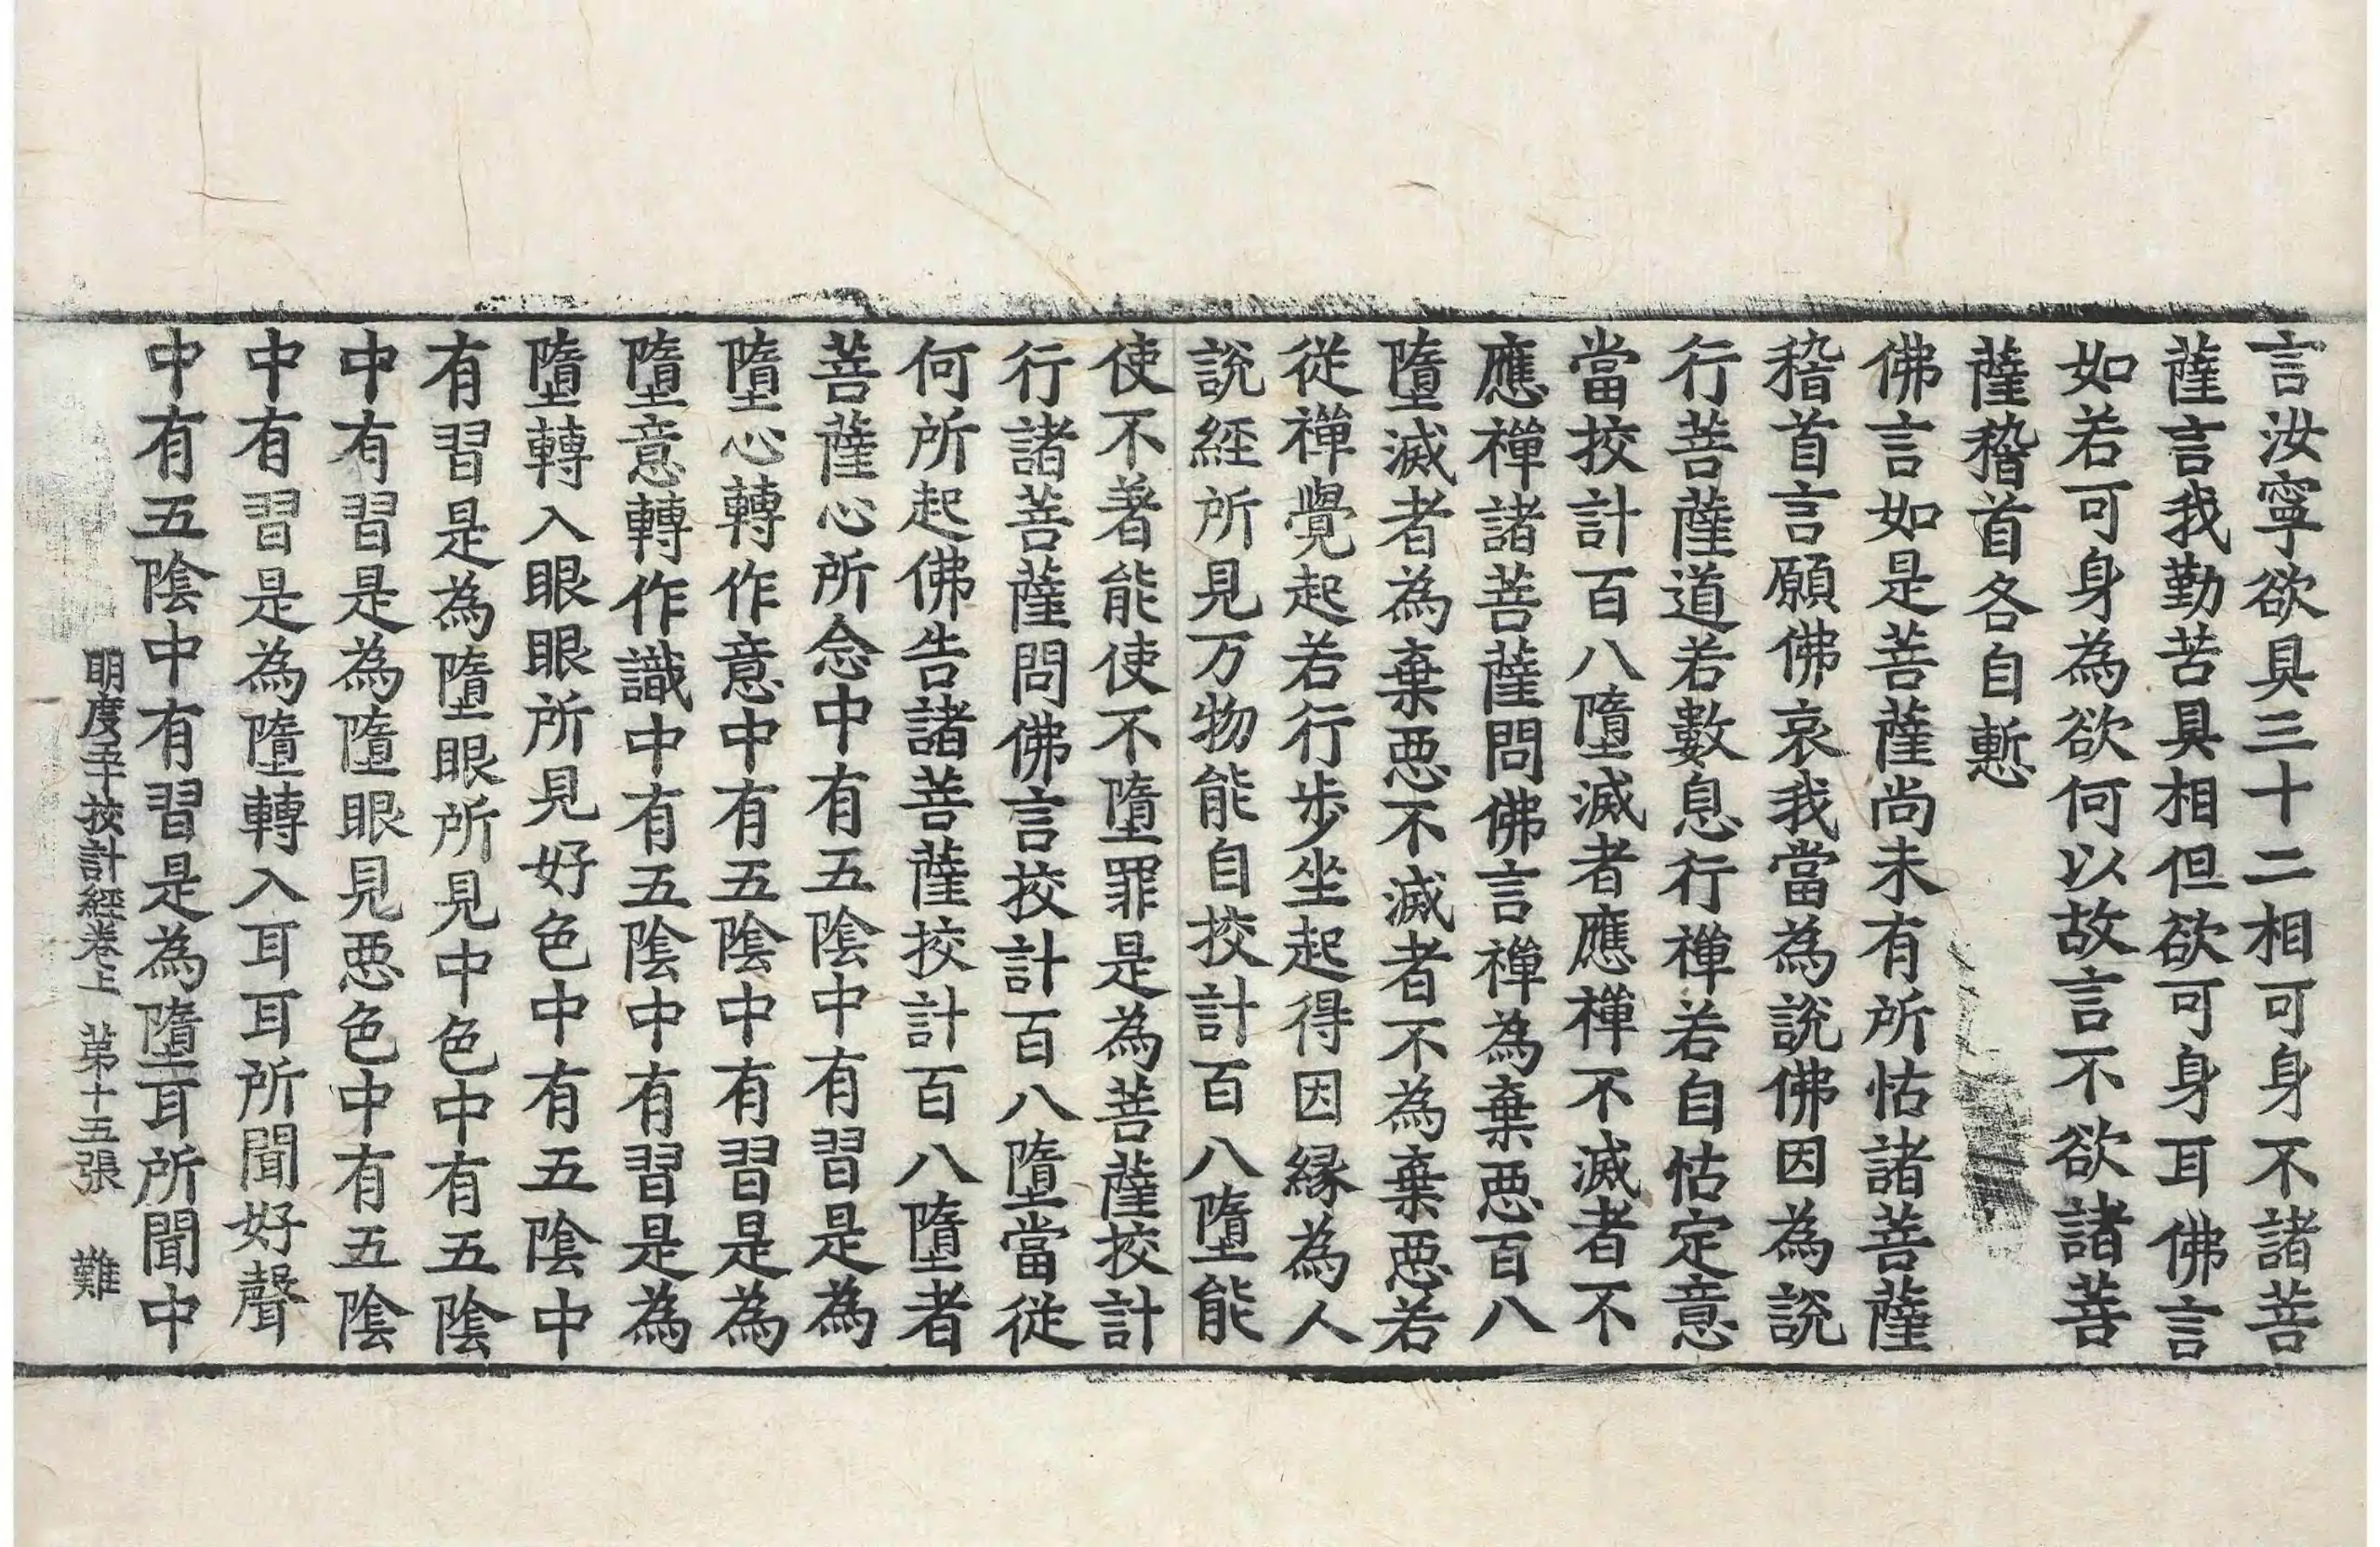 言汝寧欲具三十二相可身不諸菩
薩言我勤苦具相但欲可身耳佛言
如若可身為欲何以故言不欲諸菩
薩稽首各自慙
佛言如是菩薩尚未有所怙諸菩薩
稽首言願佛哀我當為說佛因為說
行菩薩道若數息行禪若自怙定意
當挍計百八墮滅者應禪不滅者不
應禪諸菩薩問佛言禪為棄惡百八
墮滅者為棄惡不滅者不為棄惡若
從禪覺起若行步坐起得因縁為人
說經所見万物能自挍計百八墮能
使不著能使不墮罪是為菩薩挍計
行諸菩薩問佛言挍計百八墮當從
何所起佛告諸菩薩挍計百八墮者
菩薩心所念中有五陰中有習是為
墮心轉作意中有五陰中有習是為
墮意轉作識中有五陰中有習是為
墮轉入眼眼所見好色中有五陰中
有習是為墮眼所見中色中有五陰
中有習是為墮眼見惡色中有五陰
中有習是為墮轉入耳耳所聞好聲
中有五陰中有習是為墮耳所聞中
明度五十挍計經卷上 第十五張 難